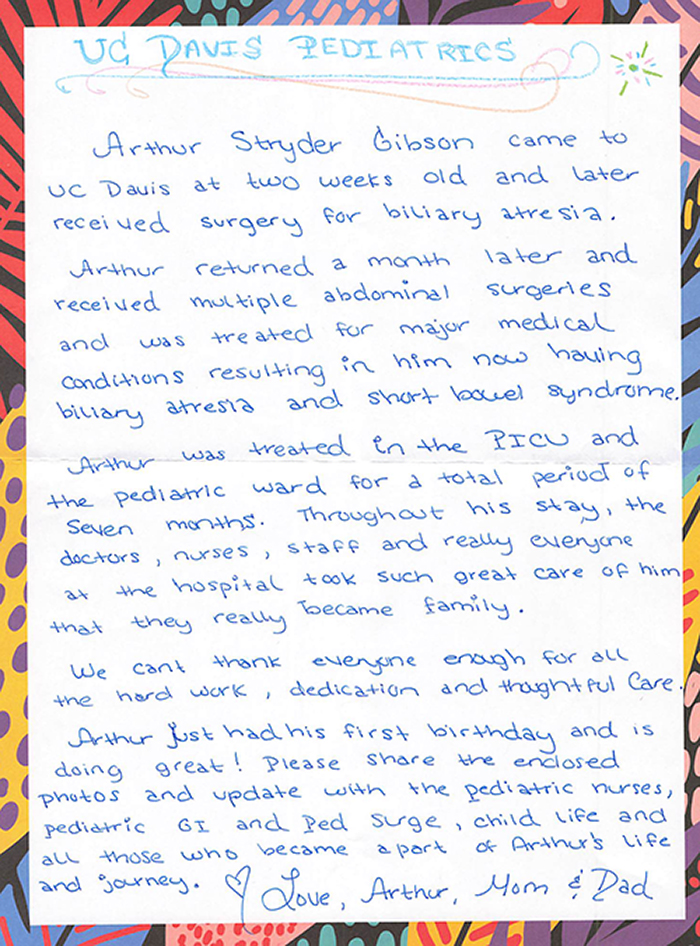 UC DAVIS PEDIATRICS
Arthur Stryder Gibson came to
UC Davis at two weeks old and later
received surgery for biliary atresia.
Arthur returned a month later and
received multiple abdominal surgeries
and was treated for major medical
conditions resulting in him now having
biliary atresia and short bowel syndrome.
Arthur was treated in the PICU and
the pediatric ward for a total period of
seven months. Throughout his stay, the
doctors, nurses, staff and really everyone
at the hospital took such great care of him
that they really became family.
We cant thank everyone enough for all
the hard work, dedication and thoughtful Care.
Arthur just had his first birthday and is
doing great! Please share the enclosed
photos and update with the pediatric nurses,
pediatric GI and Ped Surge, child life and
all those who became apart of Arthur's life
and journey. ♡ Love, Arthur, Mom & Dad